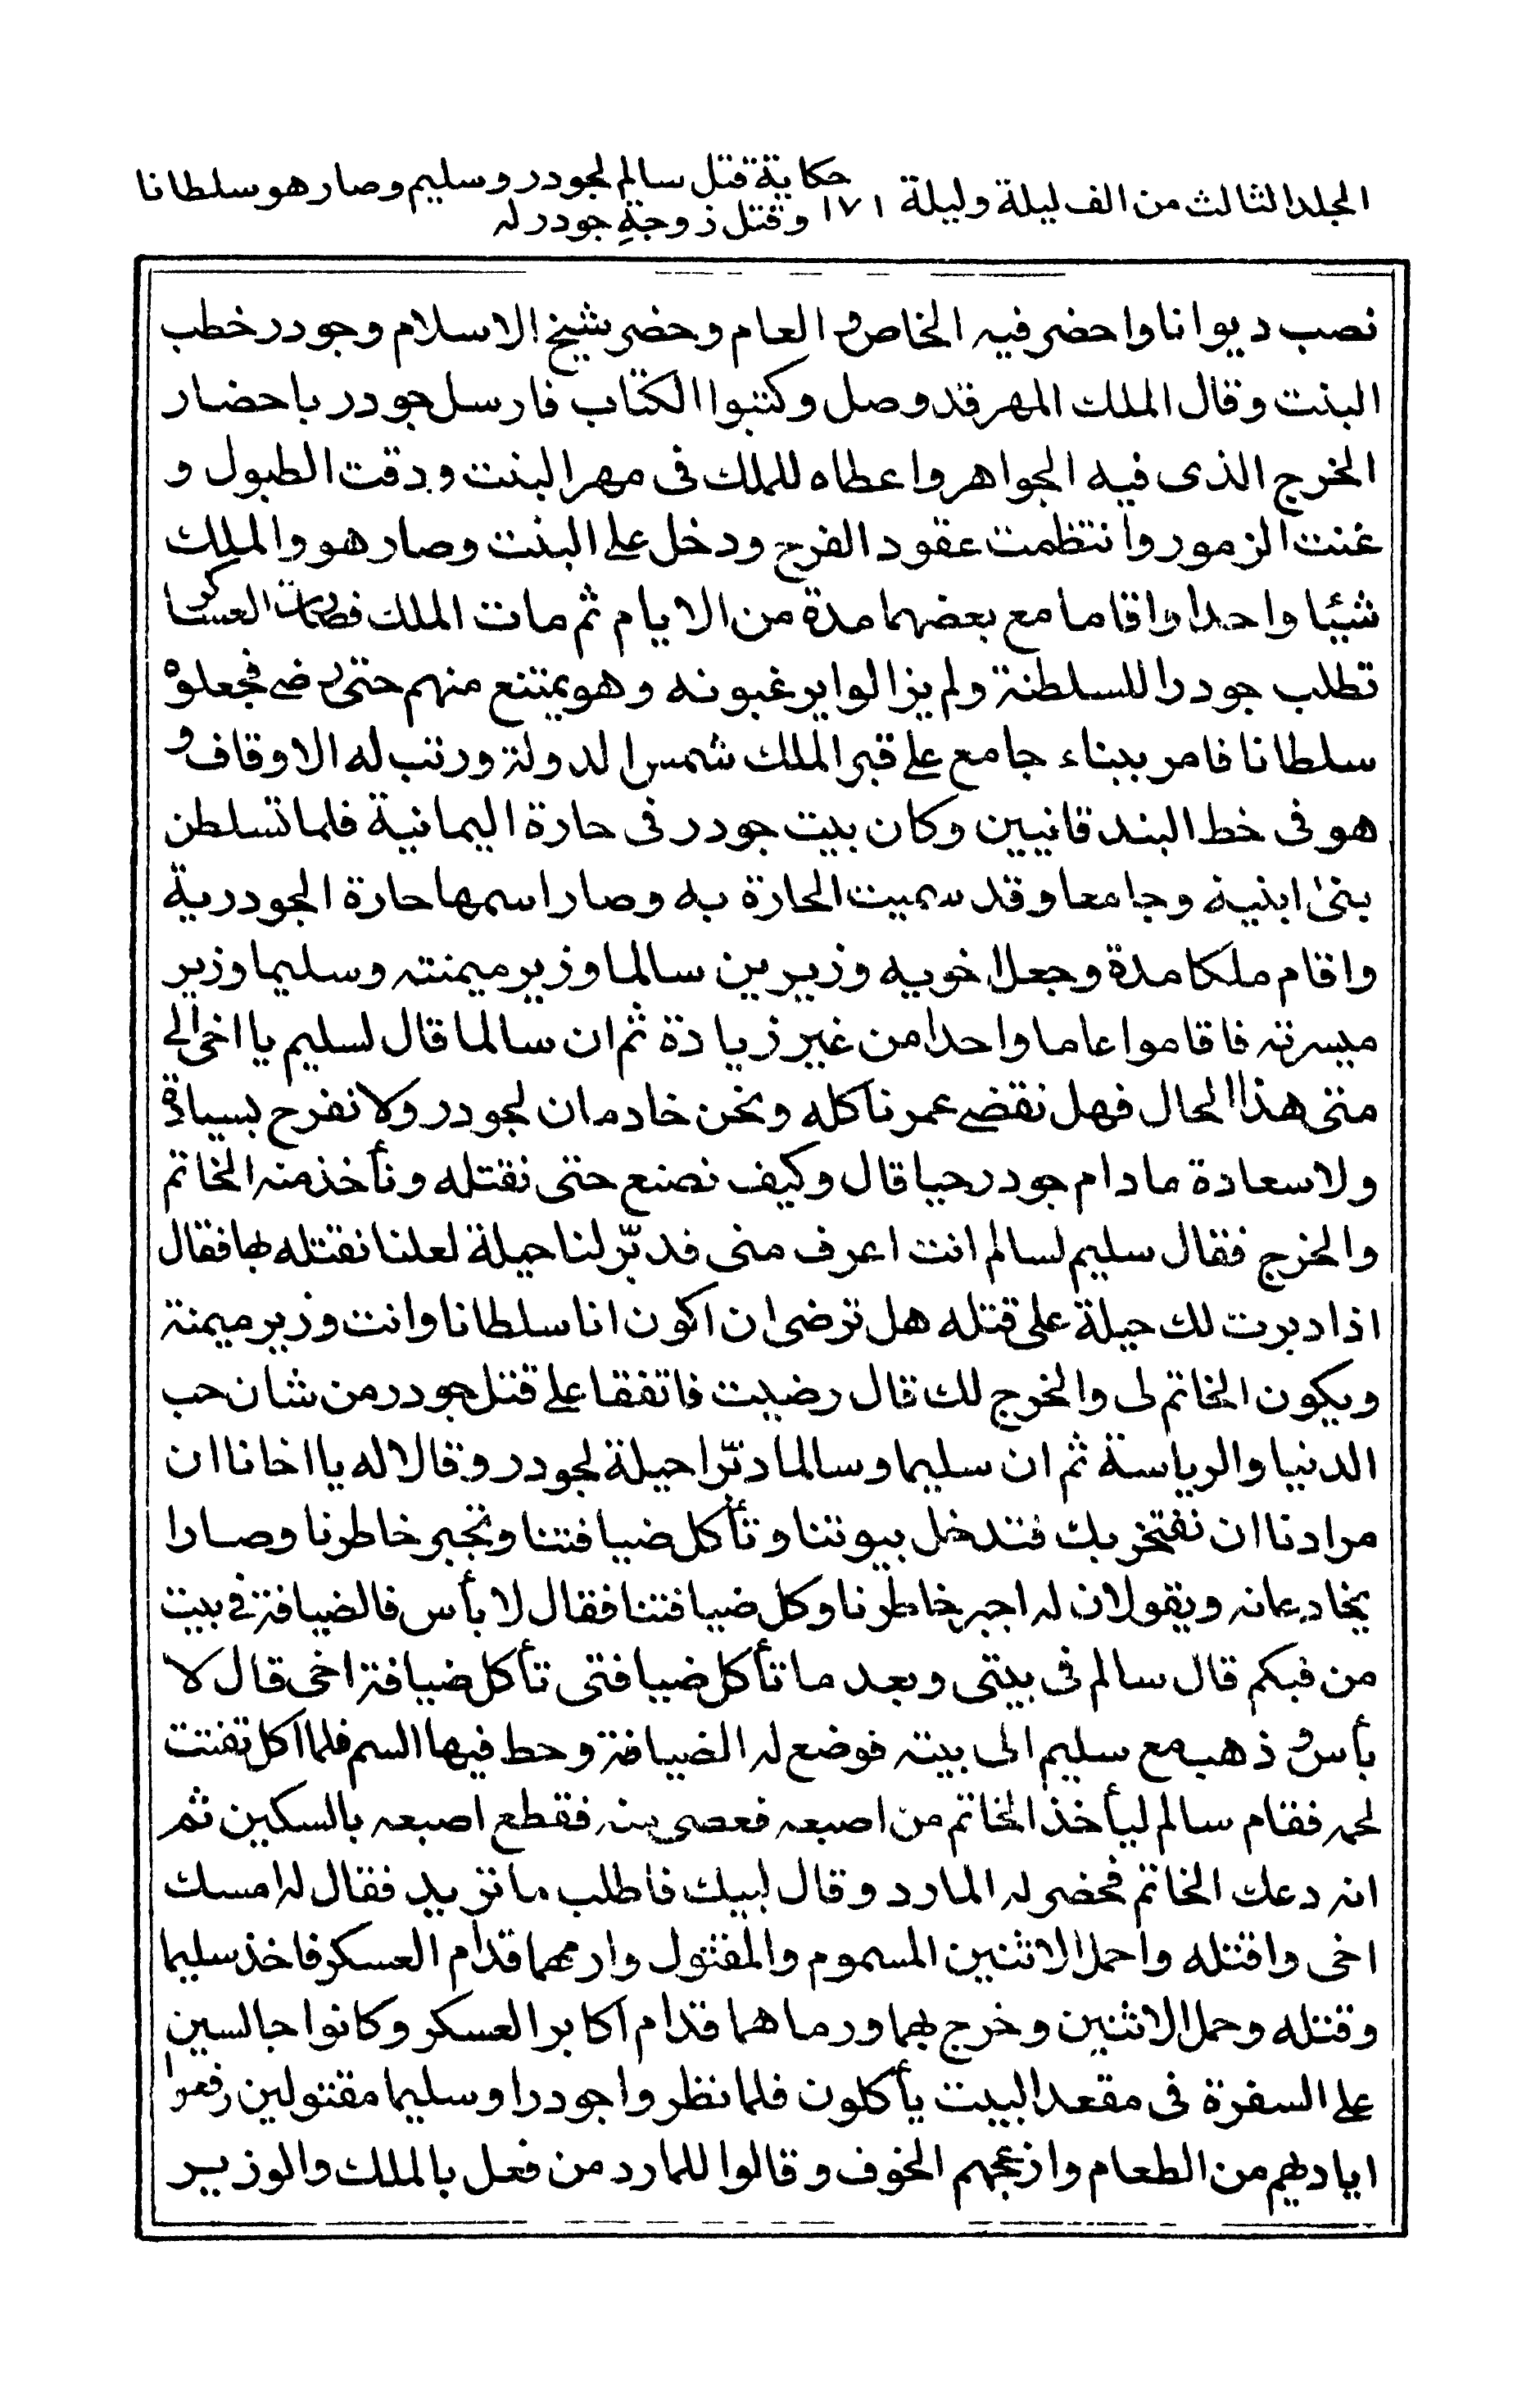 المجلد الثالث من الف ليلة وليلة ١٧١ حكاية قتل سالم لجودر وسليم وصار هو سلطانا
وقتل زوجة جودر له
نصب ديوانا واحضر فيه الخاص و العام وحضر شيخ الاسلام وجودر خطب
البنت وقال الملك المهر قد وصل وكتبوا الكتاب فارسل جودر باحضار
الخرج الذى فيه الجواهر واعطاه للملك فى مهر البنت ودقت الطبول و
غنت الزمور وانتظمت عقود الفرح ودخل على البنت وصار هو والملك
شيئا واحدا واقاما مع بعضهما مدة من الايام ثم مات الملك فصارت العساكر
تطلب جودرا للسلطنة ولم يزالوا يرغبونه وهو يمتنع منهم حتى رضى فجعلوه
سلطانا فامر ببناء جامع على قبر الملك شمس الدولة ورتب له الاوقاف و
هو فى خط البندقانيين وكان بيت جودر فى حارة اليمانية فلما تسلطن
بنى ابنية وجامعا وقد سميت الحارة به وصار اسمها حارة الجودرية
واقام ملكا مدة وجعل اخويه وزيرين سالما وزير ميمنته وسليما وزير
ميسرته فاقاموا عاما واحدا من غير زيادة ثم ان سالما قال لسليم يا اخى الى
متى هذا الحال فهل نقضى عمرنا كله ونحن خادمان لجودر ولا نفرح بسيادة
ولا سعادة ما دام جودر حيا قال وكيف نصنع حتى نقتله ونأخذ منه الخاتم
والخرج فقال سليم لسالم انت اعرف منى فدبّر لنا حيلة لعلنا نقتله بها فقال
اذا دبرت لك حيلة على قتله هل ترضى ان اكون انا سلطانا وانت وزير ميمنة
ويكون الخاتم لى والخرج لك قال رضيت فاتفقا على قتل جودر من شان حب
الدنيا والرياسة ثم ان سليما وسالما دبّرا حيلة لجودر وقالا له يا اخانا ان
مرادنا ان نفتخر بك فتدخل بيوتنا وتأكل ضيافتنا وتجبر خاطرنا وصارا
يخادعانه ويقولان له اجبر خاطرنا وكل ضيافتنا فقال لا بأس فالضيافة فى بيت
من فيكم قال سالم فى بيتى وبعد ما تأكل ضيافتى تأكل ضيافة اخى قال لا
بأس و ذهب مع سليم الى بيته فوضع له الضيافة وحط فيها السم فلما اكل تفتت
لحمه فقام سالم ليأخذ الخاتم من اصبعه فعصى منه فقطع اصبعه بالسكين ثم
انه دعك الخاتم فحضر له المارد وقال لبيك فاطلب ما تريد فقال له امسك
اخى واقتله واحمل الاثنين المسموم والمقتول وارمهما قدام العسكر فاخذ سليما
وقتله وحمل الاثنين وخرج بهما ورماهما قدام اكابر العسكر وكانوا جالسين
على السفرة فى مقعد البيت يأكلون فلما نظروا جودرا وسليما مقتولين رفعوا
اياديهم من الطعام وازعجهم الخوف وقالوا للمارد من فعل بالملك والوزير